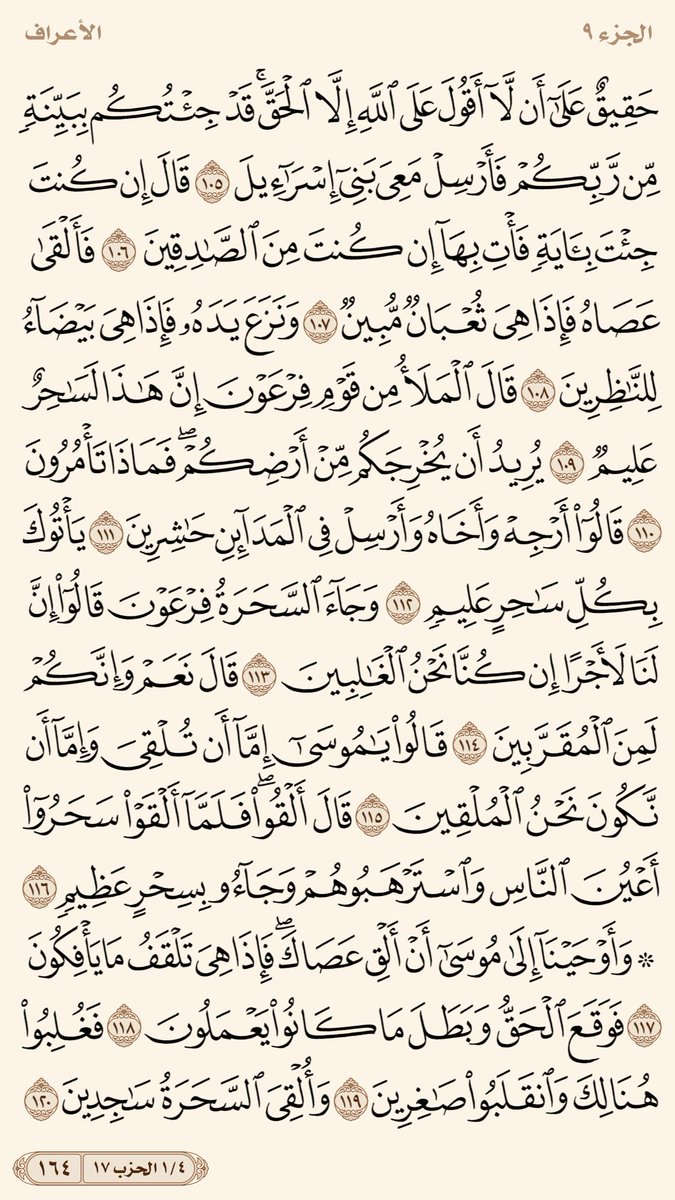 الجزء ٩
الأعراف
حَقِيقٌ عَلَىٰٓ أَن لَّآ أَقُولَ عَلَى ٱللَّهِ إِلَّا ٱلْحَقَّۚ قَدْ جِئْتُكُم بِبَيِّنَةٍ
مِّن رَّبِّكُمْ فَأَرْسِلْ مَعِىَ بَنِىٓ إِسْرَٰٓءِيلَ ١٠٥ قَالَ إِن كُنتَ
جِئْتَ بِـَٔايَةٍ فَأْتِ بِهَآ إِن كُنتَ مِنَ ٱلصَّٰدِقِينَ ١٠٦ فَأَلْقَىٰ
عَصَاهُ فَإِذَا هِىَ ثُعْبَانٌ مُّبِينٌ ١٠٧ وَنَزَعَ يَدَهُۥ فَإِذَا هِىَ بَيْضَآءُ
لِلنَّٰظِرِينَ ١٠٨ قَالَ ٱلْمَلَأُ مِن قَوْمِ فِرْعَوْنَ إِنَّ هَٰذَا لَسَٰحِرٌ
عَلِيمٌ ١٠٩ يُرِيدُ أَن يُخْرِجَكُم مِّنْ أَرْضِكُمْۖ فَمَاذَا تَأْمُرُونَ
١١٠ قَالُوٓا۟ أَرْجِهْ وَأَخَاهُ وَأَرْسِلْ فِى ٱلْمَدَآئِنِ حَٰشِرِينَ ١١١ يَأْتُوكَ
بِكُلِّ سَٰحِرٍ عَلِيمٍ ١١٢ وَجَآءَ ٱلسَّحَرَةُ فِرْعَوْنَ قَالُوٓا۟ إِنَّ
لَنَا لَأَجْرًا إِن كُنَّا نَحْنُ ٱلْغَٰلِبِينَ ١١٣ قَالَ نَعَمْ وَإِنَّكُمْ
لَمِنَ ٱلْمُقَرَّبِينَ ١١٤ قَالُوا۟ يَٰمُوسَىٰٓ إِمَّآ أَن تُلْقِىَ وَإِمَّآ أَن
نَّكُونَ نَحْنُ ٱلْمُلْقِينَ ١١٥ قَالَ أَلْقُوا۟ۖ فَلَمَّآ أَلْقَوْا۟ سَحَرُوٓا۟
أَعْيُنَ ٱلنَّاسِ وَٱسْتَرْهَبُوهُمْ وَجَآءُو بِسِحْرٍ عَظِيمٍ ١١٦
۞ وَأَوْحَيْنَآ إِلَىٰ مُوسَىٰٓ أَنْ أَلْقِ عَصَاكَۖ فَإِذَا هِىَ تَلْقَفُ مَا يَأْفِكُونَ
١١٧ فَوَقَعَ ٱلْحَقُّ وَبَطَلَ مَا كَانُوا۟ يَعْمَلُونَ ١١٨ فَغُلِبُوا۟
هُنَالِكَ وَٱنقَلَبُوا۟ صَٰغِرِينَ ١١٩ وَأُلْقِىَ ٱلسَّحَرَةُ سَٰجِدِينَ ١٢٠
١/٤ الحزب ١٧
١٦٤